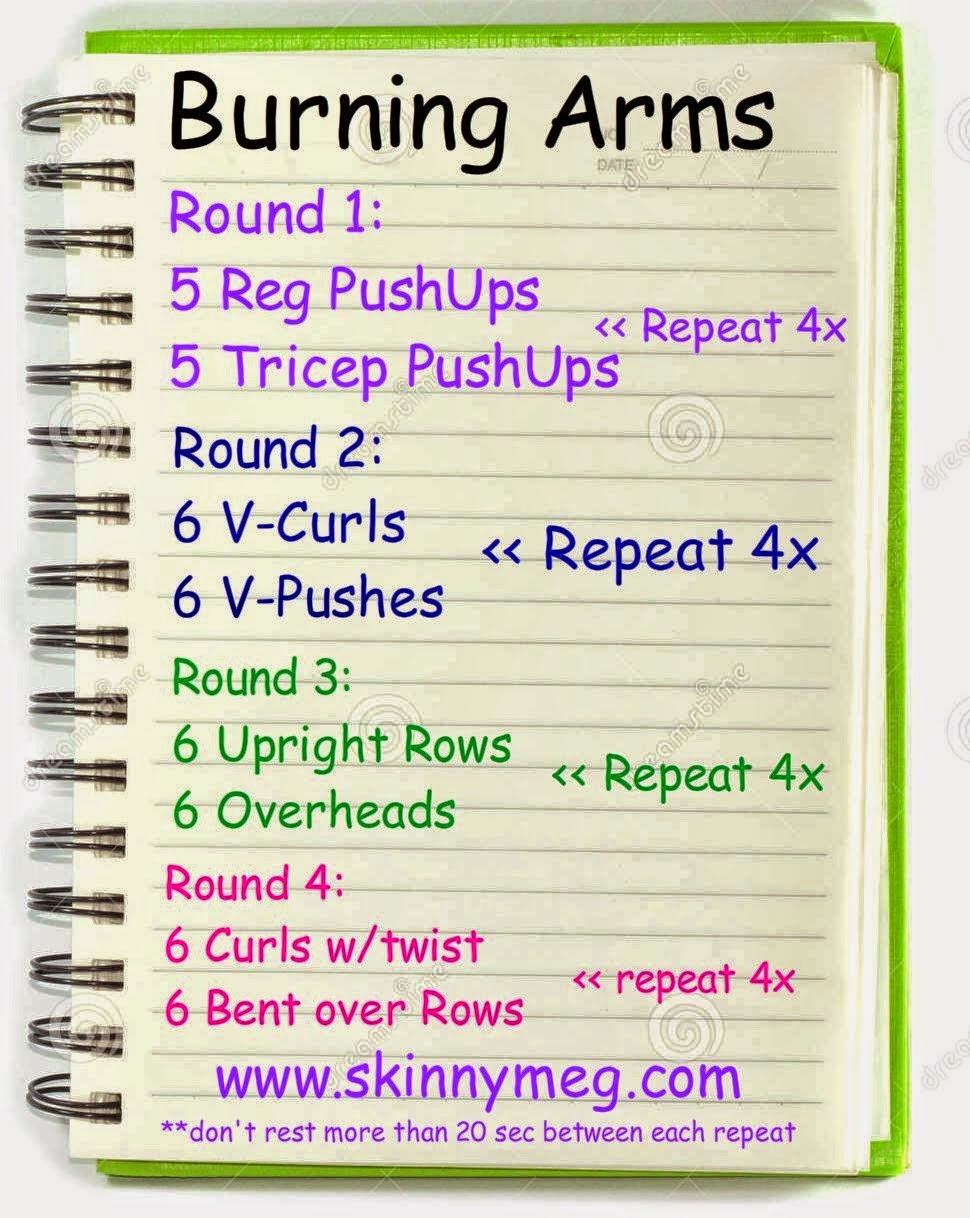 Burning Arms
NO.
DATE
Round 1:
5 Reg PushUps
<< Repeat 4x
5 Tricep PushUps
Round 2:
6 V-Curls
<< Repeat 4x
6 V-Pushes
Round 3:
6 Upright Rows
<< Repeat 4x
6 Overheads
Round 4:
6 Curls w/twist
<< repeat 4x
6 Bent over Rows
www.skinnymeg.com
**don't rest more than 20 sec between each repeat
dreamstime
dreamstime
dreamstime
dreamstime
dreamstime
dreamstime